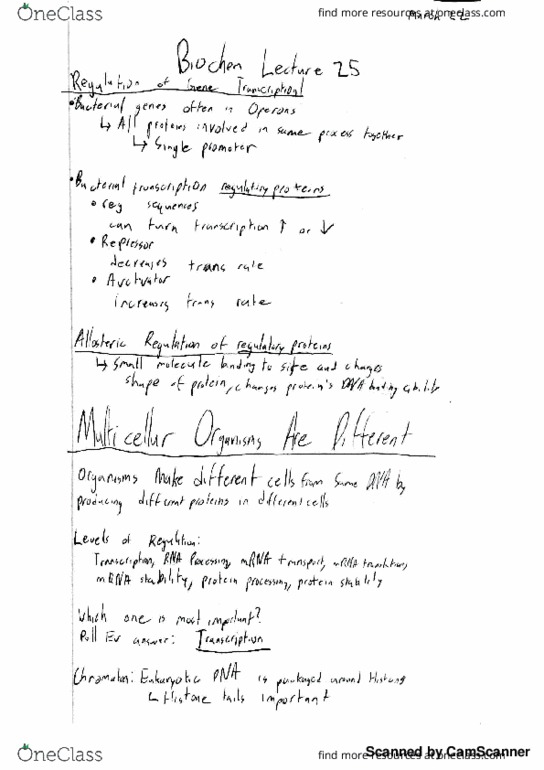 OneClass
find more resources at oneclass.com
March 22
Biochem Lecture 25
Regulation of Gene Transcription!
• Bacterial genes often in Operons
↳ All proteins involved in same process together
↳ Single promoter
• Bacterial transcription regulatory proteins
• reg sequences
can turn transcription ↑ or ↓
• Repressor
decreases trans rate
• Activator
increases trans rate
Allosteric Regulation of regulatory proteins
↳ Small molecule binding to site and changes
shape of protein, changes protein's DNA binding ability
Multicellur Organisms Are Different
Organisms Make different cells from same DNA by
producing different proteins in different cells
Levels of Regulation:
Transcription, RNA Processing, mRNA transport, mRNA translation,
mRNA stability, protein processing, protein stability
Which one is most important?
Poll Ev answer: Transcription
Chromatin: Eukaryotic DNA is packaged around Histones
↳ Histone tails important
OneClass
find more resources at oneclass.com
Scanned by CamScanner